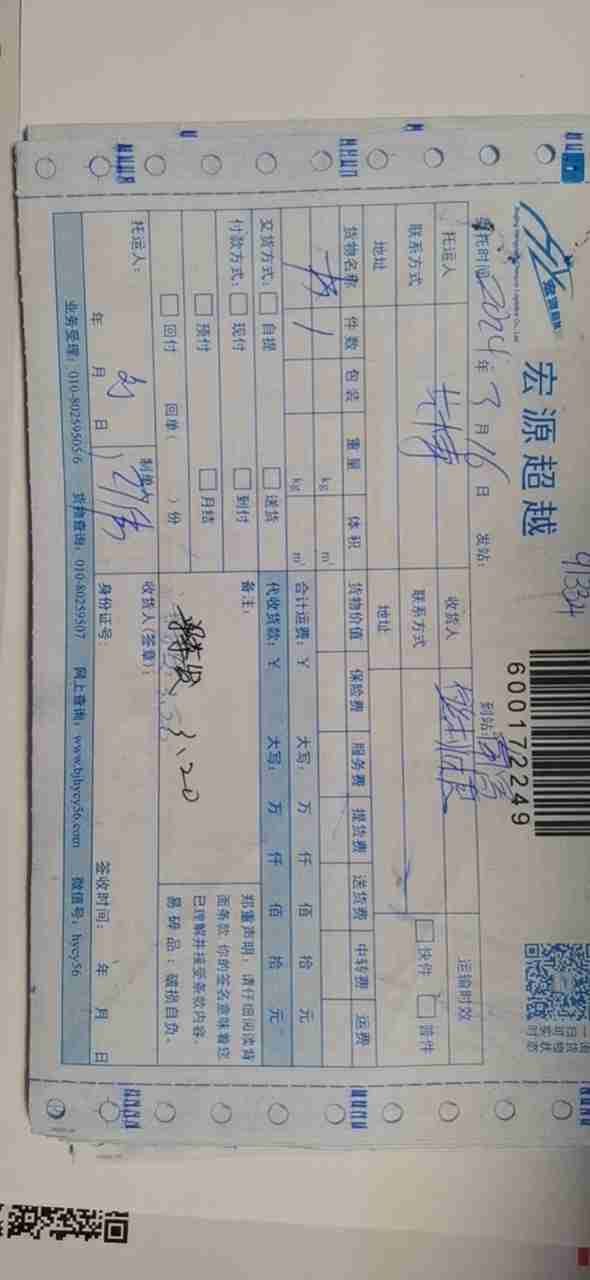 宏源超越
9334
600172249
托时间 2024 年 3 月 16 日 发站: 到站:
托运人 收货人 运输时效
联系方式 联系方式 快件 普件
地址 地址
货物名称 件数 包装 重量 体积 货物价值 保险费 服务费 提货费 送货费 中转费 运费
1 kg m³
kg m³ 合计运费: ¥ 大写: 万 仟 佰 拾 元
交货方式: 自提 送货 代收货款: ¥ 大写: 万 仟 佰 拾 元
付款方式: 现付 到付 备注:
预付 月结
回付 回单( )份
3.20
郑重声明: 请仔细阅读背
面条款 你的签名意味着您
已理解并接受条款内容。
易碎品: 破损自负。
托运人: 制单人 收货人(签章):
年 月 日 身份证号: 签收时间: 年 月 日
业务受理: 010-80259505/6 货物查询: 010-80259507 网上查询: www.bjhycy56.com 微信号: hycy56